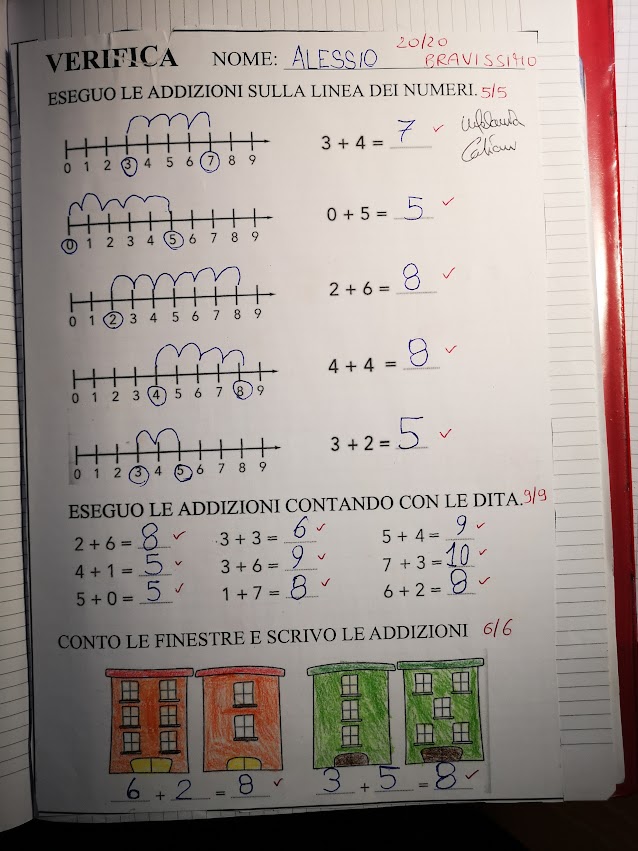 20/20
VERIFICA NOME: ALESSIO BRAVISSIMO
ESEGUO LE ADDIZIONI SULLA LINEA DEI NUMERI. 5/5
0 1 2 3 4 5 6 7 8 9 3 + 4 = 7
0 1 2 3 4 5 6 7 8 9 0 + 5 = 5
0 1 2 3 4 5 6 7 8 9 2 + 6 = 8
0 1 2 3 4 5 6 7 8 9 4 + 4 = 8
0 1 2 3 4 5 6 7 8 9 3 + 2 = 5
ESEGUO LE ADDIZIONI CONTANDO CON LE DITA. 9/9
2 + 6 = 8 3 + 3 = 6 5 + 4 = 9
4 + 1 = 5 3 + 6 = 9 7 + 3 = 10
5 + 0 = 5 1 + 7 = 8 6 + 2 = 8
CONTO LE FINESTRE E SCRIVO LE ADDIZIONI 6/6
6 + 2 = 8 3 + 5 = 8